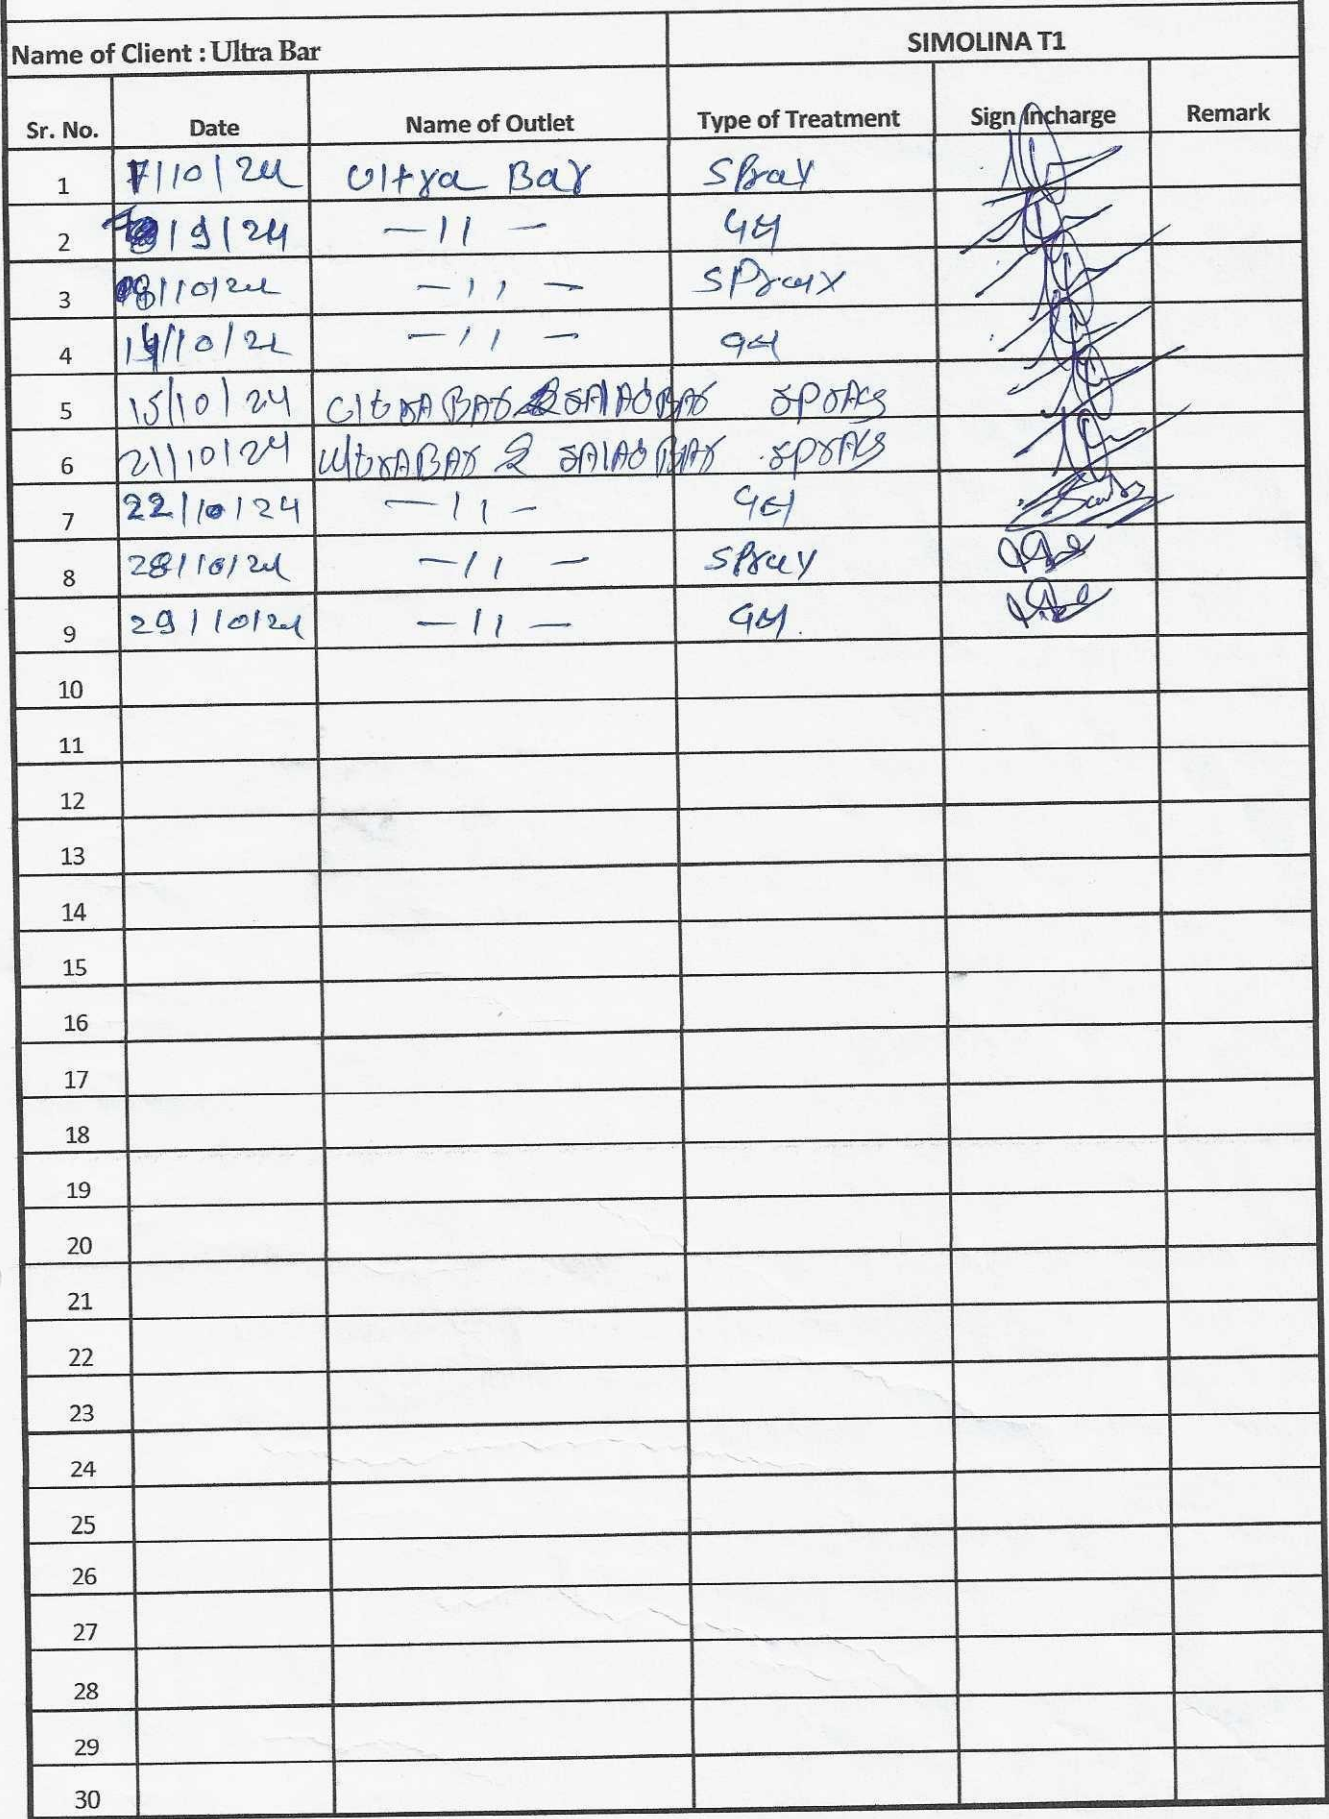 Name of Client : Ultra Bar SIMOLINA T1
Sr. No. Date Name of Outlet Type of Treatment Sign Incharge Remark
1 7/10/24 Ultra Bar Spray
2 /9/24 -11- Gel
3 08/10/24 -11- Spray
4 14/10/24 -11- Gel
5 15/10/24 Ultra Bar & SALAD BAR SPRAY
6 21/10/24 Ultra BAR & SALAD BAR SPRAY
7 22/10/24 -11- Gel
8 28/10/24 -11- Spray
9 29/10/24 -11- Gel.
10
11
12
13
14
15
16
17
18
19
20
21
22
23
24
25
26
27
28
29
30